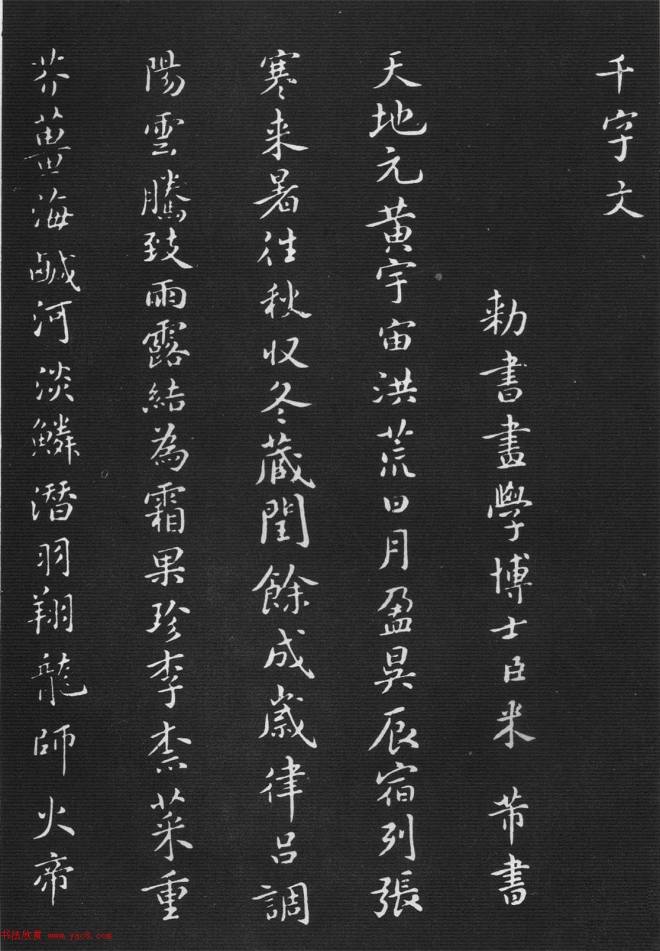 千字文
勅書畫學博士臣米芾書
天地元黃宇宙洪荒日月盈昃辰宿列張
寒来暑往秋収冬藏閏餘成歲律呂調
陽雲騰致雨露結為霜果珍李柰菜重
芥薑海鹹河淡鱗潛羽翔龍師火帝
书法欣赏 www.yac8.com